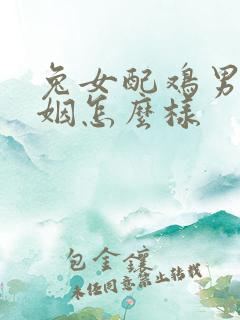 兔女配鸡男
姻怎麼樣
包金鑲
未经同意禁止转载